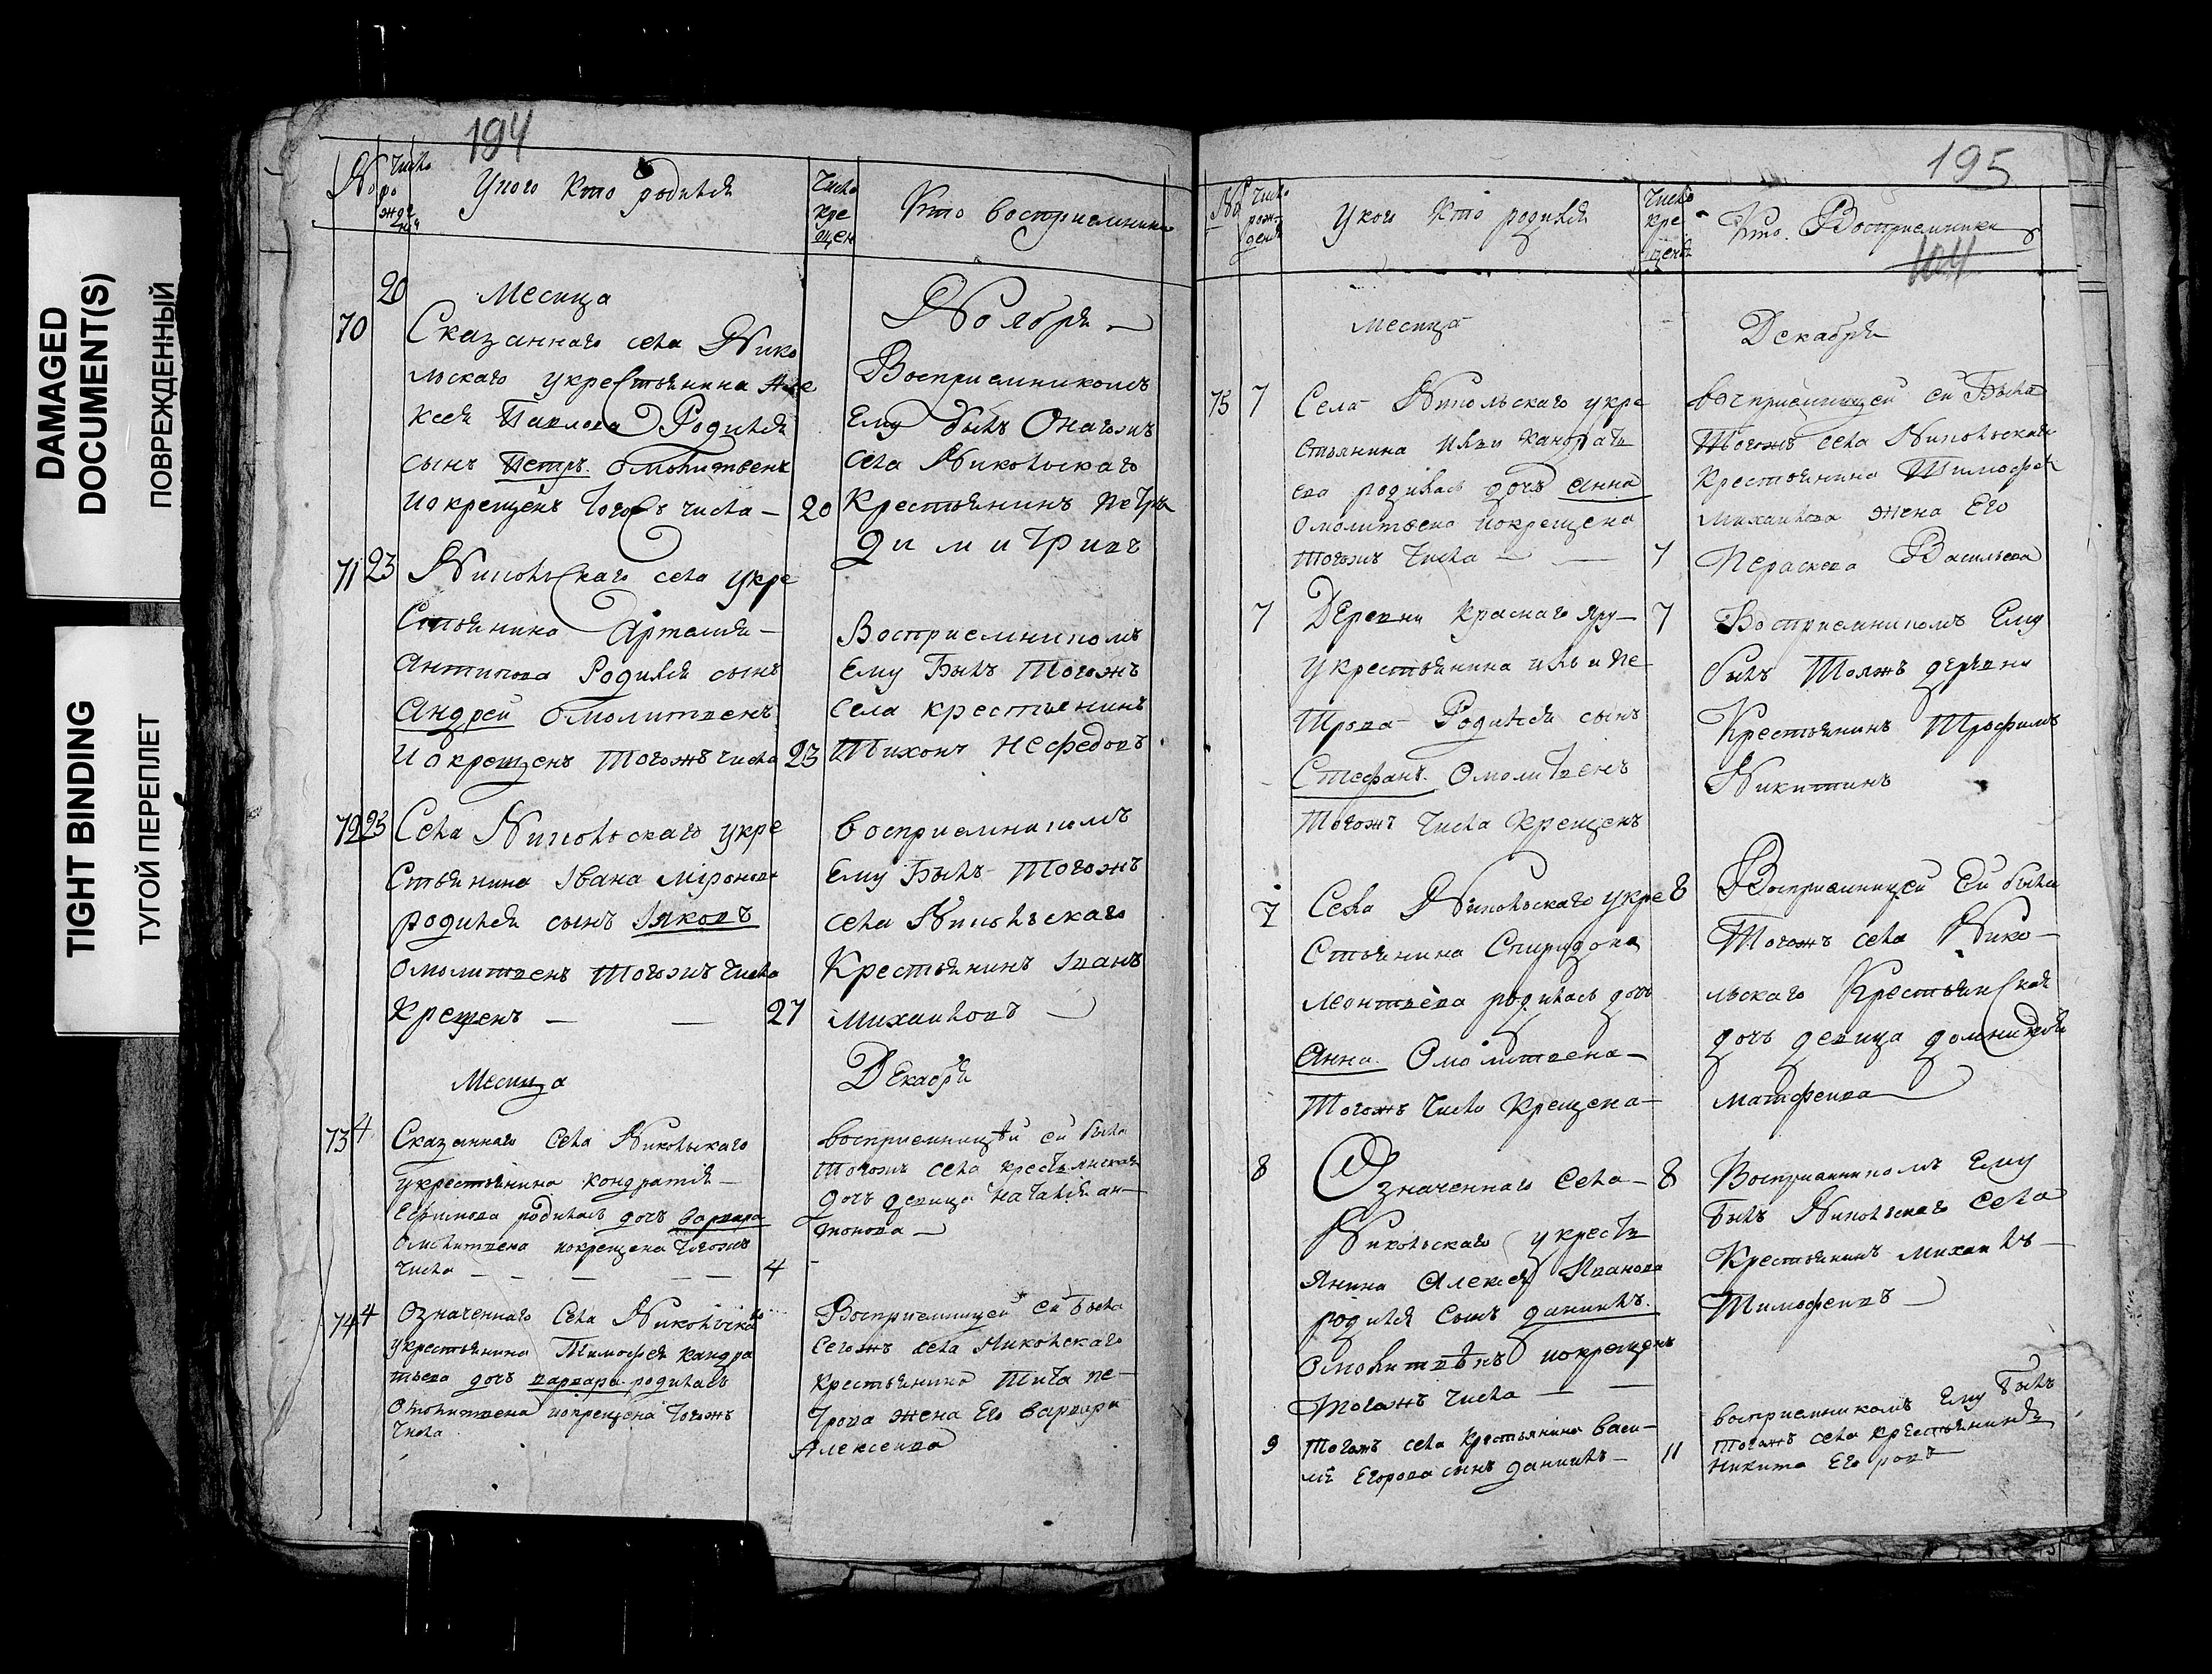 DAMAGED
DOCUMENT(S)
ПОВРЕЖДЕННЫЙ
TIGHT BINDING
ТУГОЙ ПЕРЕПЛЕТ
194
№ Число рожде
Укого Кто родился
Число крещен
Кто восприемники
Месяца
Ноября
70 20
Сказаннаго села Нико
льскаго укрестьянина Але
ксея Павлова Родился
сынъ Петръ Омолитвенъ
иокрещенъ того Съ числа — 20
Восприемникомъ
Ему былъ Онагожъ
села Никольскаго
Крестьянинъ Петръ
Димитриевъ
71 23
Никольскаго села укре
Стьянина Артамія —
Антипова Родился сынъ
Андрей Омолитвенъ
И окрещенъ Тогожъ числа 23
Восприемникомъ
Ему Былъ Тогожъ
села крестьянинъ
Тихонъ Несфедовъ
72 23
Села Никольскаго укре
Стьянина Івана Міронова
родился сынъ Іяковъ
Омолитвенъ Тогожъ числа
Крещенъ — — 27
восприемникомъ
Ему Былъ Тогожъ
села Никольскаго
Крестьянинъ Іванъ
Михаиловъ
Месяца
Декабря
73 4
Сказаннаго Села Никольскаго
укрестьянина Кондратія —
Ефимова родилась дочь Варвара
Омолитвена иокрещена Тогожъ
числа — — — — — 4
восприемницей ей была
Тогожъ села крестьянская
Дочь девица Наталія Ан—
тонова —
74 4
Означеннаго Села Никольскаго
укрестьянина Тимофея Кандра
тьева дочь варвара родилась
Омолитвена иокрещена Тогожъ
Числа
Восприемницей ей Была
Сегожъ села Никольскаго
Крестьянина Тита Пе—
трова жена Его Варвара
Алексеева
195
№ Число рожденя
Укого Кто родился
Число крещеня
Кто Восприемники
104
Месяца
Декабря
75 7
Села Никольскаго укре
стьянина Ильи Кандрать
ева родилась дочь Анна
Омолитвена иокрещена
Тогожъ Числа — — 7
восприемницей ей Была
Тогожъ села Никольскаго
Крестьянина Тимофея
Михаилова жена Его
Пераскева Васильева
7
Деревни Краснаго Яру — 7
укрестьянина ильи Пе
Трова Родился сынъ
Стефанъ Омолитвенъ
Тогожъ Числа Крещенъ
Восприемникомъ Ему
былъ Тояжъ деревни
Крестьянинъ Трофимъ
Никитинъ
7
Села Никольскаго укре 8
Стьянина Спиридона
Леонтьева родилась дочь
Анна Омолитвена —
Тогожъ Числа Крещена —
Восприемницей Ей была
Тогожъ села Нико—
льскаго Крестьянская
дочь девица Домникія
Матфеива
8
Означеннаго Села — 8
Никольскаго укресть
Янина Алексея Иванова
родился Сынъ Даниилъ
Омолитвенъ иокрещенъ
Тогожъ числа — —
Восприемникомъ Ему
Былъ Никольскаго Села
Крестьянинъ Михаилъ —
Тимофеивъ
9
Тогожъ села крестьянина Васи—
лія Егорова сынъ Даниилъ — 11
восприемникомъ Ему Былъ
Тогожъ села крестьянинъ
Никита Егоровъ